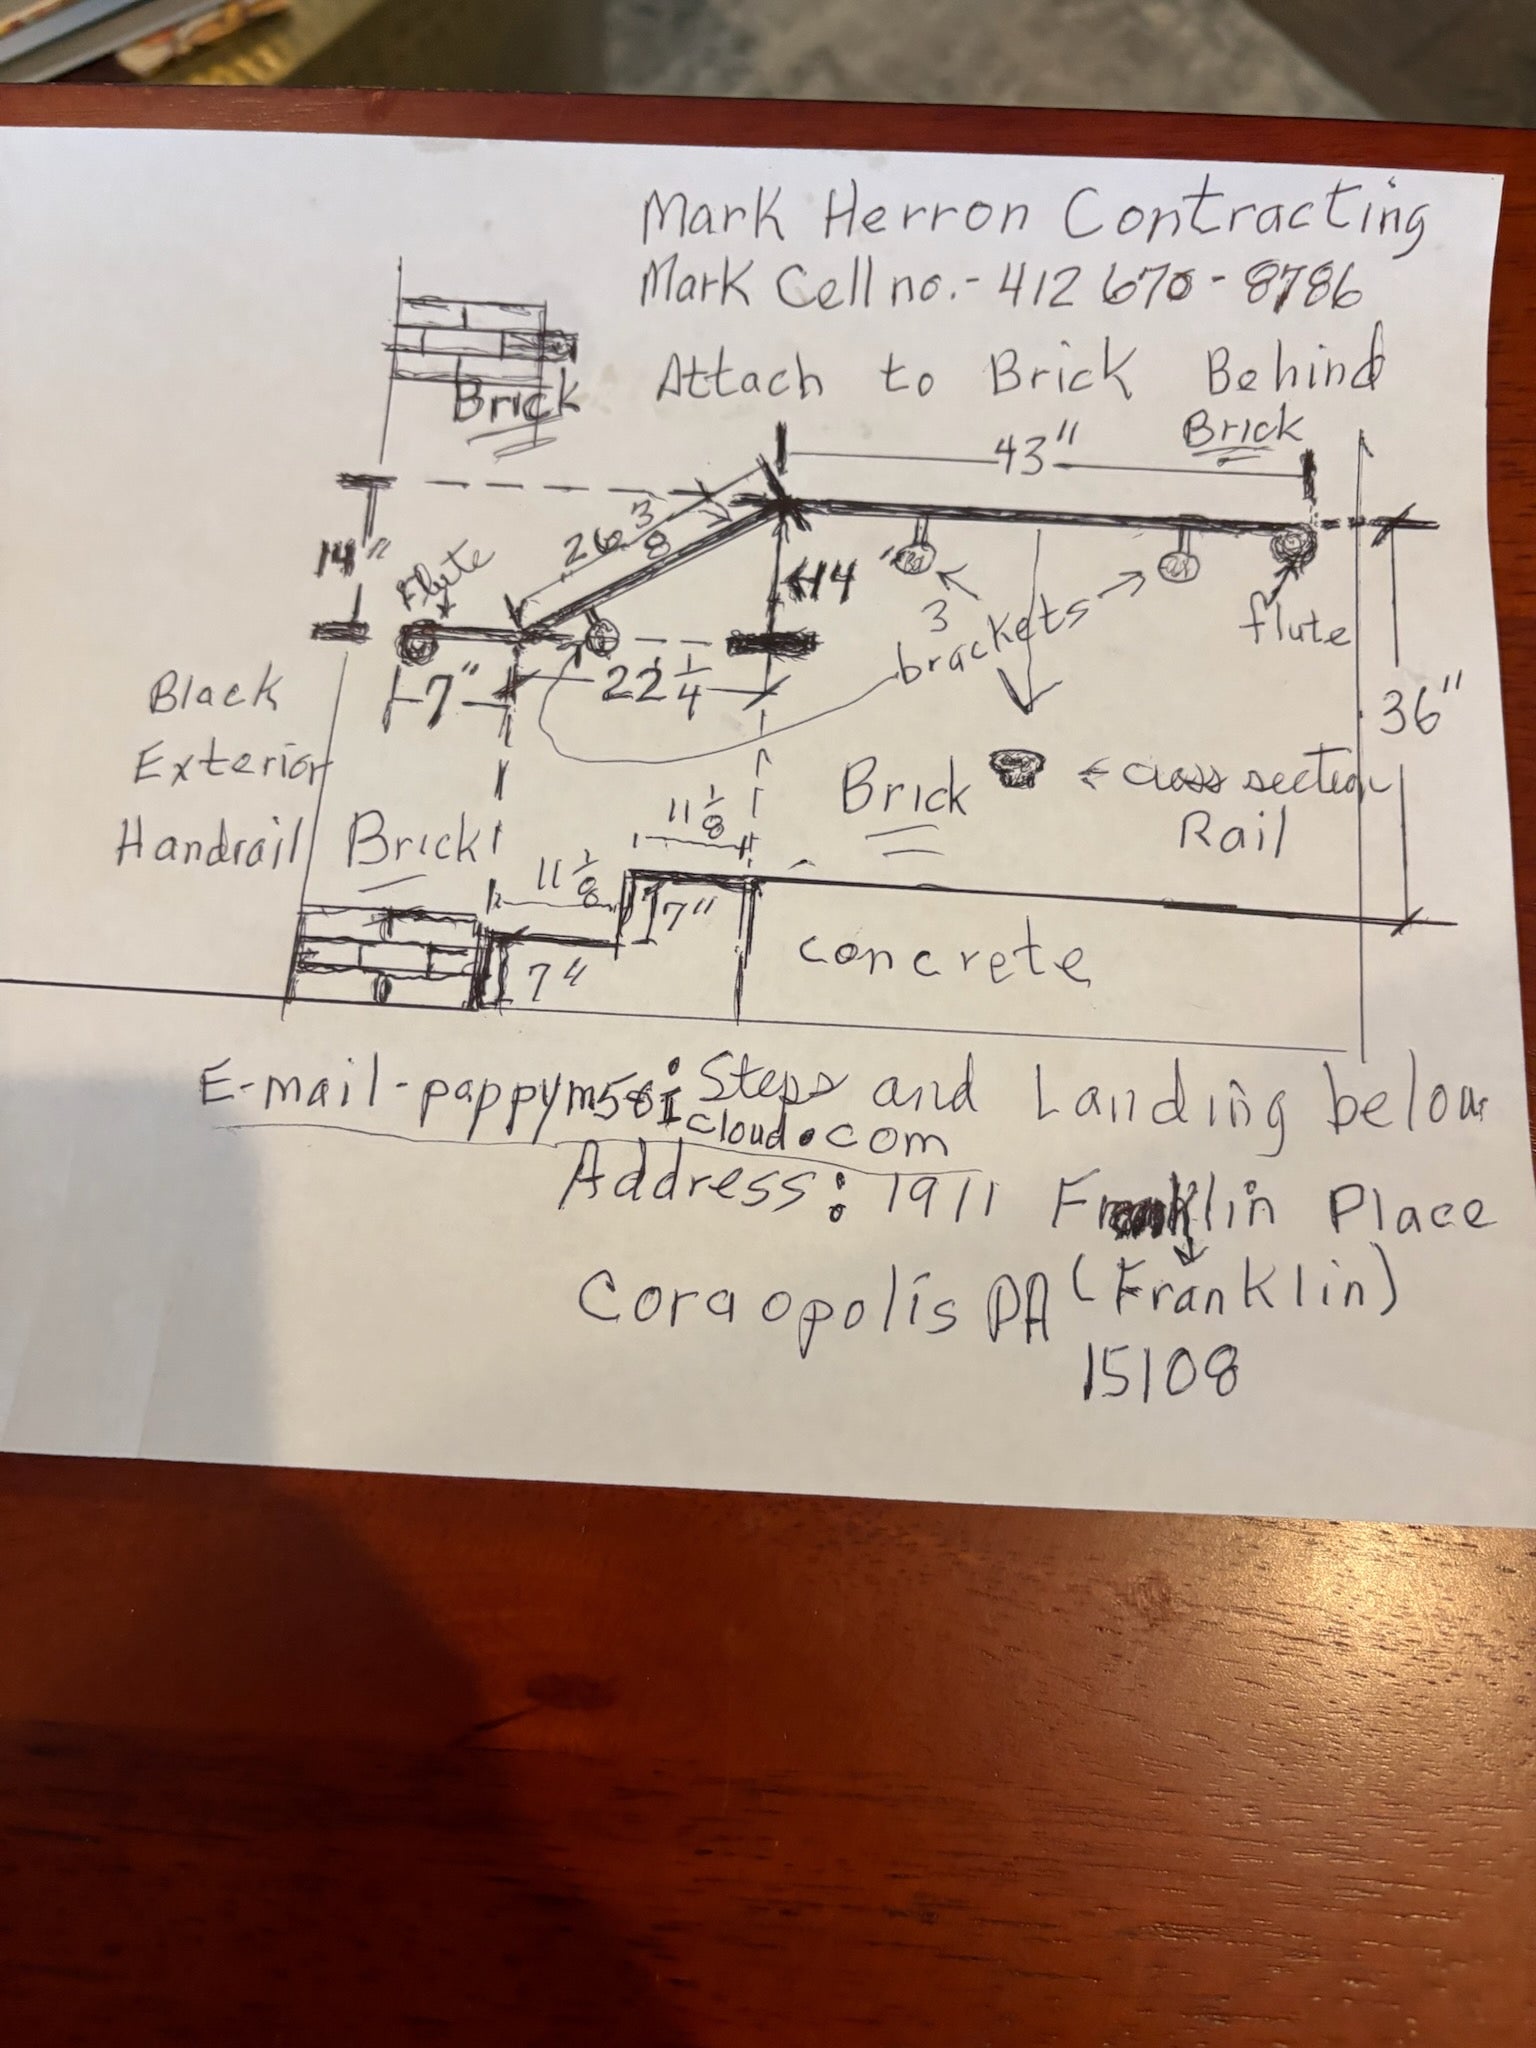 Mark Herron Contracting
Mark Cell no.- 412 670-8786
Attach to Brick Behind
Brick
Brick
43"
26 3/8
14"
flute
14"
3
brackets
flute
7"
22 1/4
36"
Black
Exterior
Handrail
Brick
Brick
← cross section
Rail
11 1/8
11 1/8
7"
7"
concrete
E-mail-pappym58i
cloud.com
Steps and Landing below
Address: 1911 Franklin Place
Coraopolis PA (Franklin)
15108